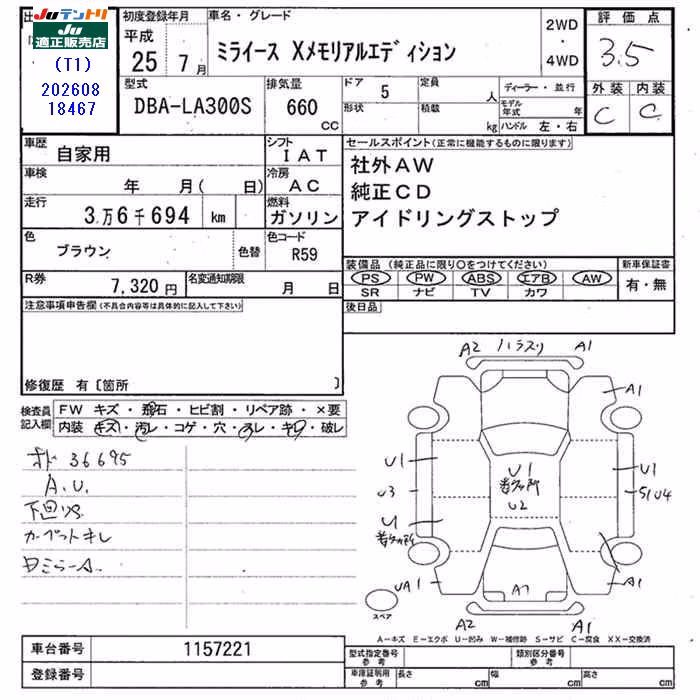 出
Juテントリ
Ju
適正販売店
(T1)
202608
18467
初度登録年月
平成
25 7月
車名・グレード
ミライース Xメモリアルエディション
2WD
・
4WD
評価点
3.5
外装 内装
C C
型式
DBA-LA300S
排気量
660
CC
ドア 5
形状
定員 人
積載 kg
ディーラー・並行
モデル年式 年
ハンドル 左・右
車歴
自家用
シフト
IAT
車検
年 月( 日)
冷房
AC
走行
3万6千694 km
燃料
ガソリン
色
ブラウン
色替
色コード
R59
R券
7,320円
名変通知期限
月 日
セールスポイント(正常に機能するものに限ります)
社外AW
純正CD
アイドリングストップ
装備品(純正品に限り○をつけてください)
PS PW ABS エアB AW
SR ナビ TV カワ
新車保証書
有・無
後日品
注意事項申告欄(不具合内容等は具体的に記入して下さい)
修復歴 有〔箇所 〕
検査員
記入欄
FW キズ・飛石・ヒビ割・リペア跡・×要
内装 キズ・汚レ・コゲ・穴・スレ・キレ・破レ
36695
A.U.
カーペットキレ
A2 ハラスリ A1
A1
U1
U3
U1
U2
U1
S1U4
U
UA1
A1
A2 A1
スペア
A-キズ E-エクボ U-凹み W-補修跡 S-サビ C-腐食 XX-交換済
車台番号
1157221
登録番号
型式指定番号
参考
類別区分番号
参考
車庫証明用
参考
長さ cm
幅 cm
高さ cm